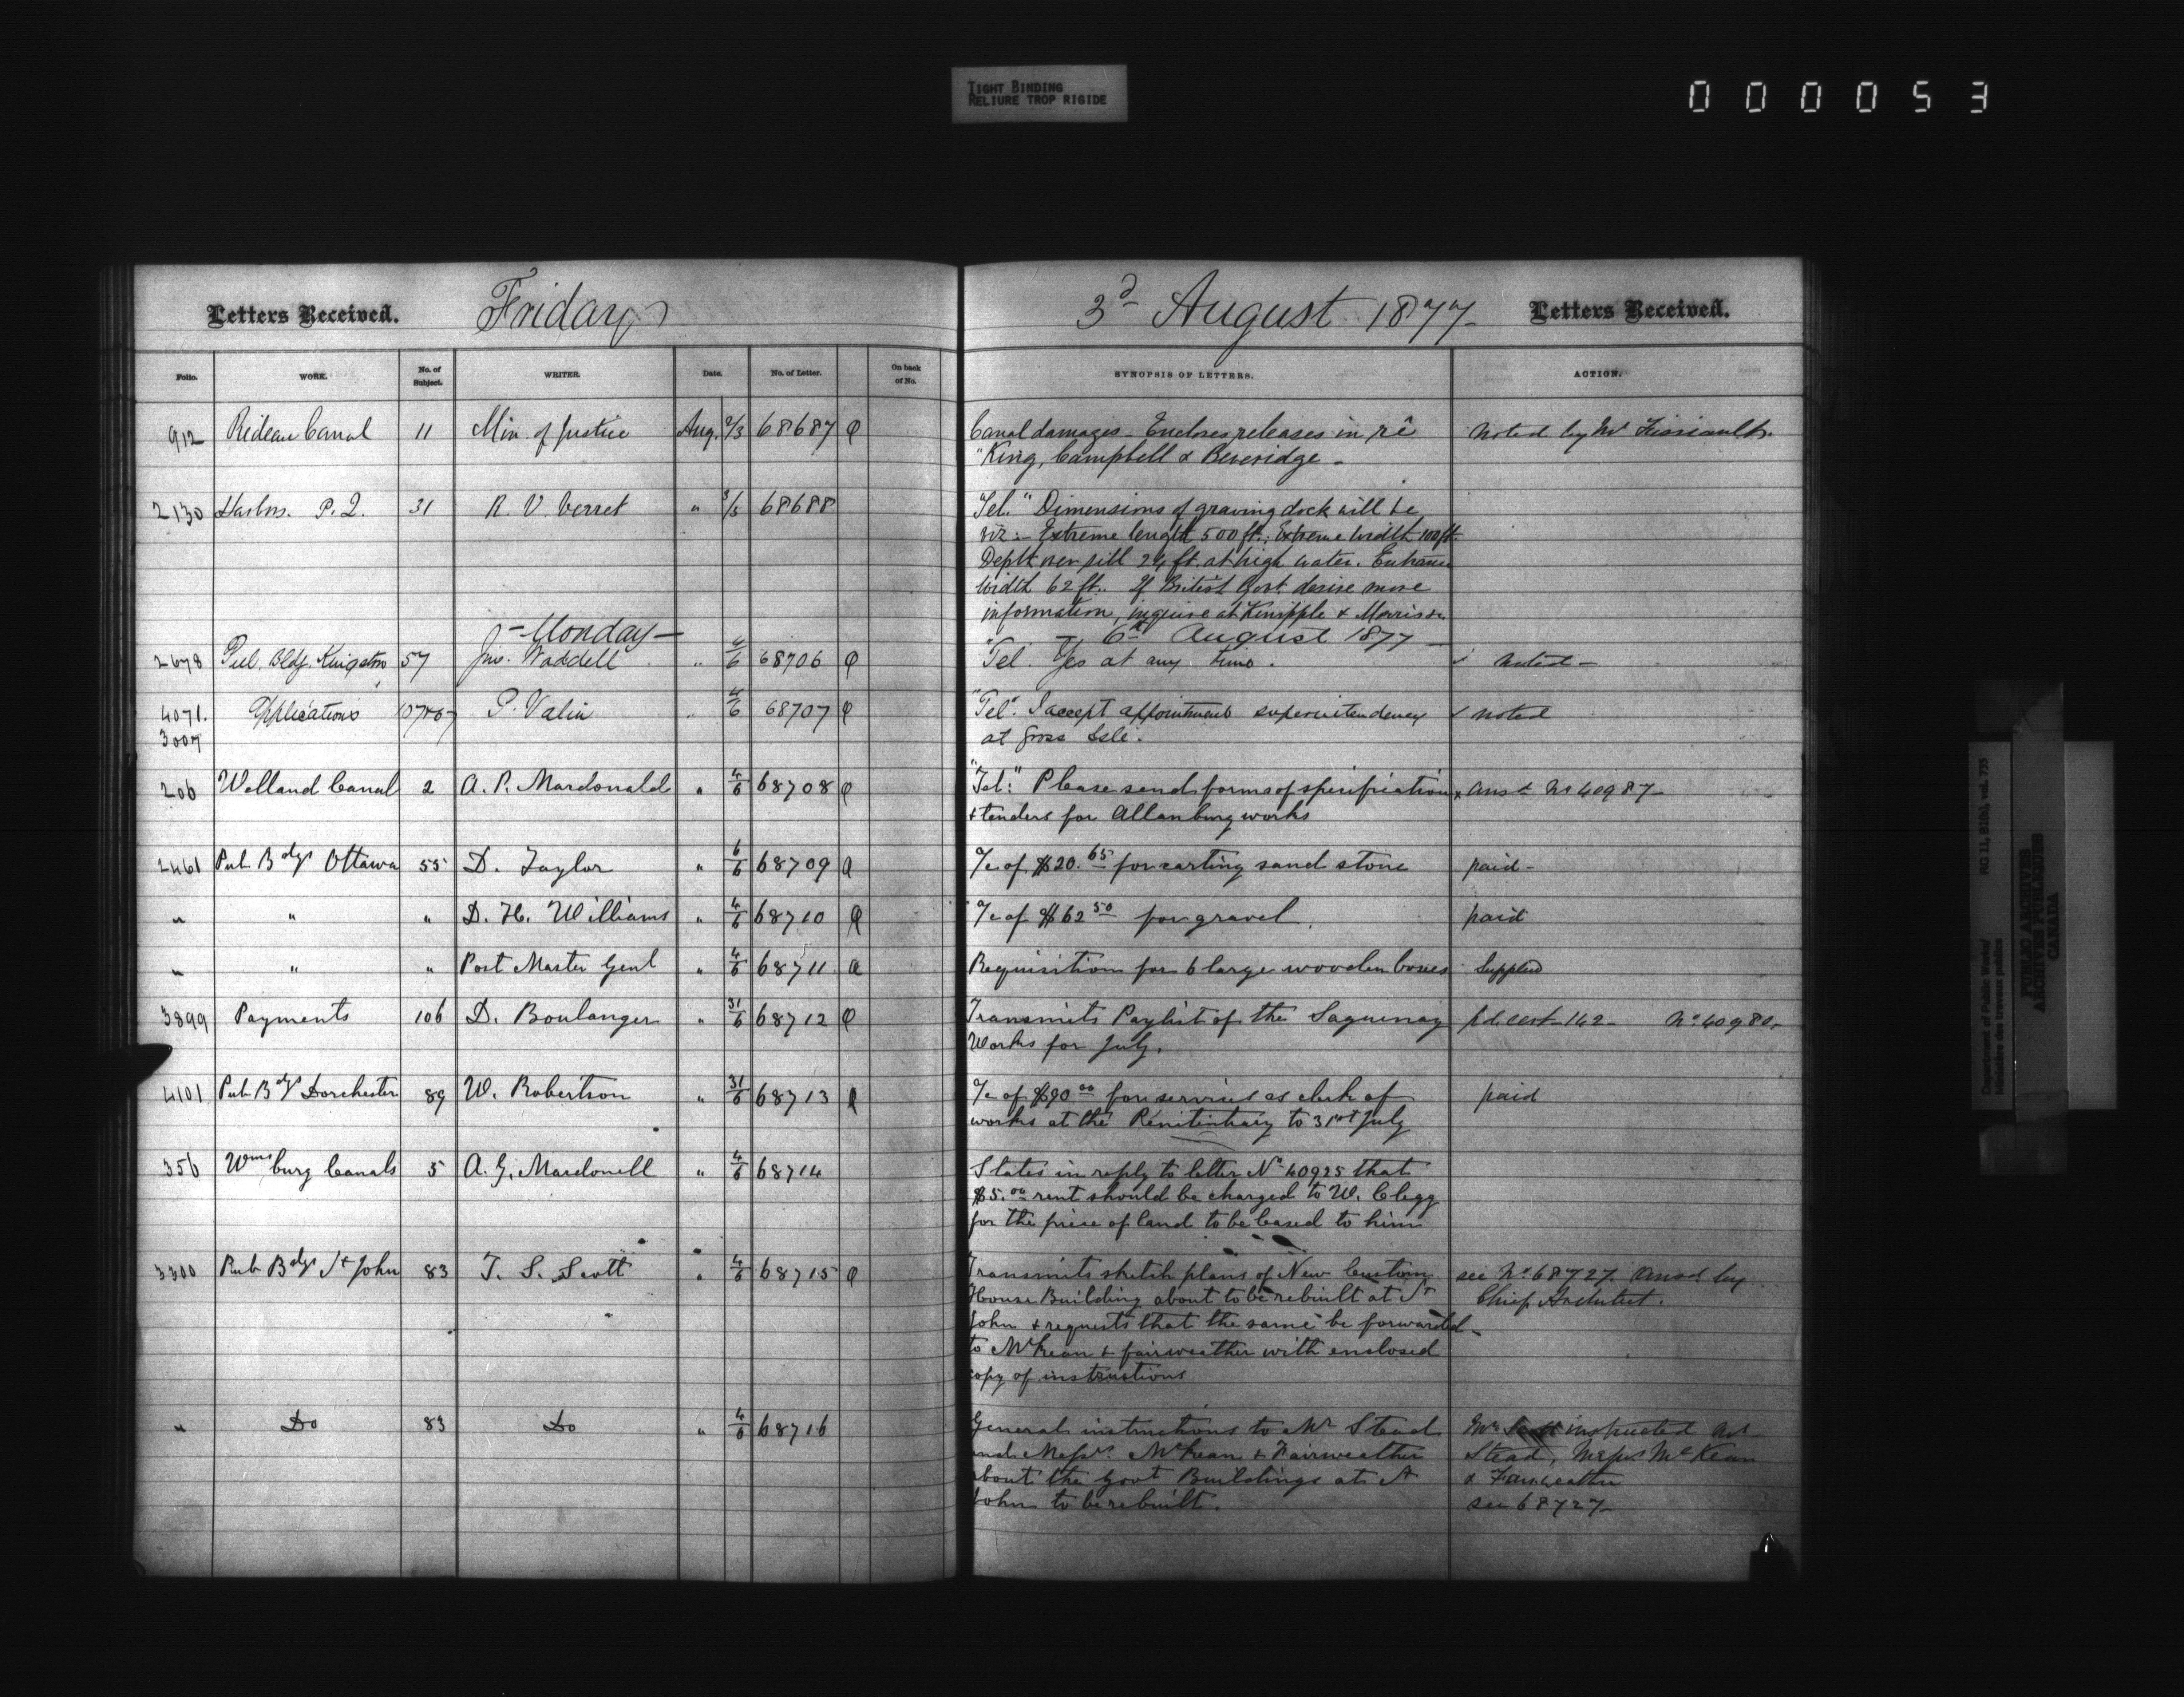 TIGHT BINDING
RELIURE TROP RIGIDE
000053
Letters Received. Friday 3d August 1877 Letters Received.
Folio. WORK. No. of Subject. WRITER. Date. No. of Letter. On back of No. SYNOPSIS OF LETTERS. ACTION.
912 Rideau Canal 11 Min. of Justice Aug. 2/3 68687 Canal damages - Encloses releases in rê Noted by Mr
"King, Campbell & Beveridge -
2130 Harbrs. P.Q. 31 R. V. Verret " 3/3 68688 "Tel." Dimensions of graving dock will be
viz:- Extreme lenght 500 ft.; Extreme width 100 ft.
Depth over sill 24 ft. at high water. Entrance
width 62 ft. If British Govt. desire more
information, inquire at Kinipple & Morris
- Monday - - 6th August 1877 -
2678 Pub. Bldg. Kingston 57 Jno. Waddell " 4/6 68706 "Tel. Yes at any time. noted -
4071. Applications 107 P. Valin " 4/6 68707 "Tel". I accept appointment superintendency noted
3007 at Gross Isle.
206 Welland Canal 2 A. P. Macdonald " 4/6 68708 "Tel." Please send forms of specification ansd No 40987
& tenders for Allanburg works
2461 Pub Bdgs Ottawa 55 D. Taylor " 6/6 68709 a/c of $20.65 for carting sand stone paid -
" " " D. H. Williams " 4/6 68710 a/c of $62 50 for gravel. paid
" " " Post Master Genl " 4/6 68711 Requisition for 6 large wooden boxes Supplied
3899 Payments 106 D. Boulanger " 31/6 68712 Transmits Paylist of the Saguenay pd. cert 142 - No 40980.
Works for July.
4101 Pub Bdgs Dorchester 89 W. Robertson " 31/6 68713 a/c of $90 00 for services as clerk of paid
works at the Penitentiary to 31st July
356 Wmsburg Canals 5 A. G. Macdonell " 4/6 68714 States in reply to letter No 40925 that
$5.00 rent should be charged to W. Clegg
for the piece of land to be leased to him
3300 Pub Bdgs St John 83 T. S. Scott " 4/6 68715 Transmits sketch plans of New Custom see No 68727. Ansd by
House Building about to be rebuilt at St Chief Architect.
John & requests that the same be forwarded
to McKean & Fairweather with enclosed
copy of instructions
" Do 83 Do " 4/6 68716 General instructions to Mr Stead Mr Scott instructed Mr
and Messrs. McKean & Fairweather Stead, Messrs McKean
about the Govt Buildings at St & Fairweather
John to be rebuilt. see 68727
Department of Public Works/
Ministère des travaux publics
RG 11, B1(a), vol. 735
PUBLIC ARCHIVES
ARCHIVES PUBLIQUES
CANADA